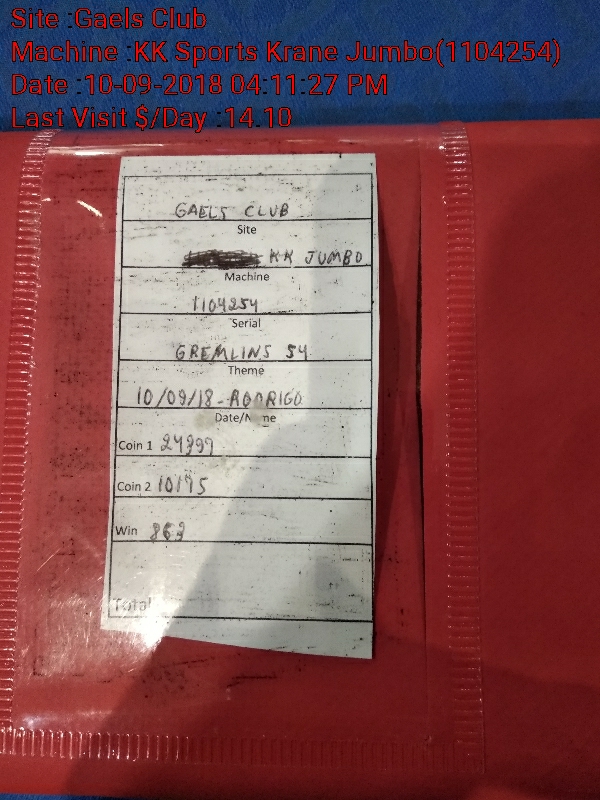 Site :Gaels Club
Machine :KK Sports Krane Jumbo(1104254)
Date :10-09-2018 04:11:27 PM
Last Visit $/Day :14.10
GAELS CLUB
Site
KK JUMBO
Machine
1104254
Serial
GREMLINS 54
Theme
10/09/18-RODRIGO
Date/Name
Coin 1 24397
Coin 2 10175
Win 863
Total